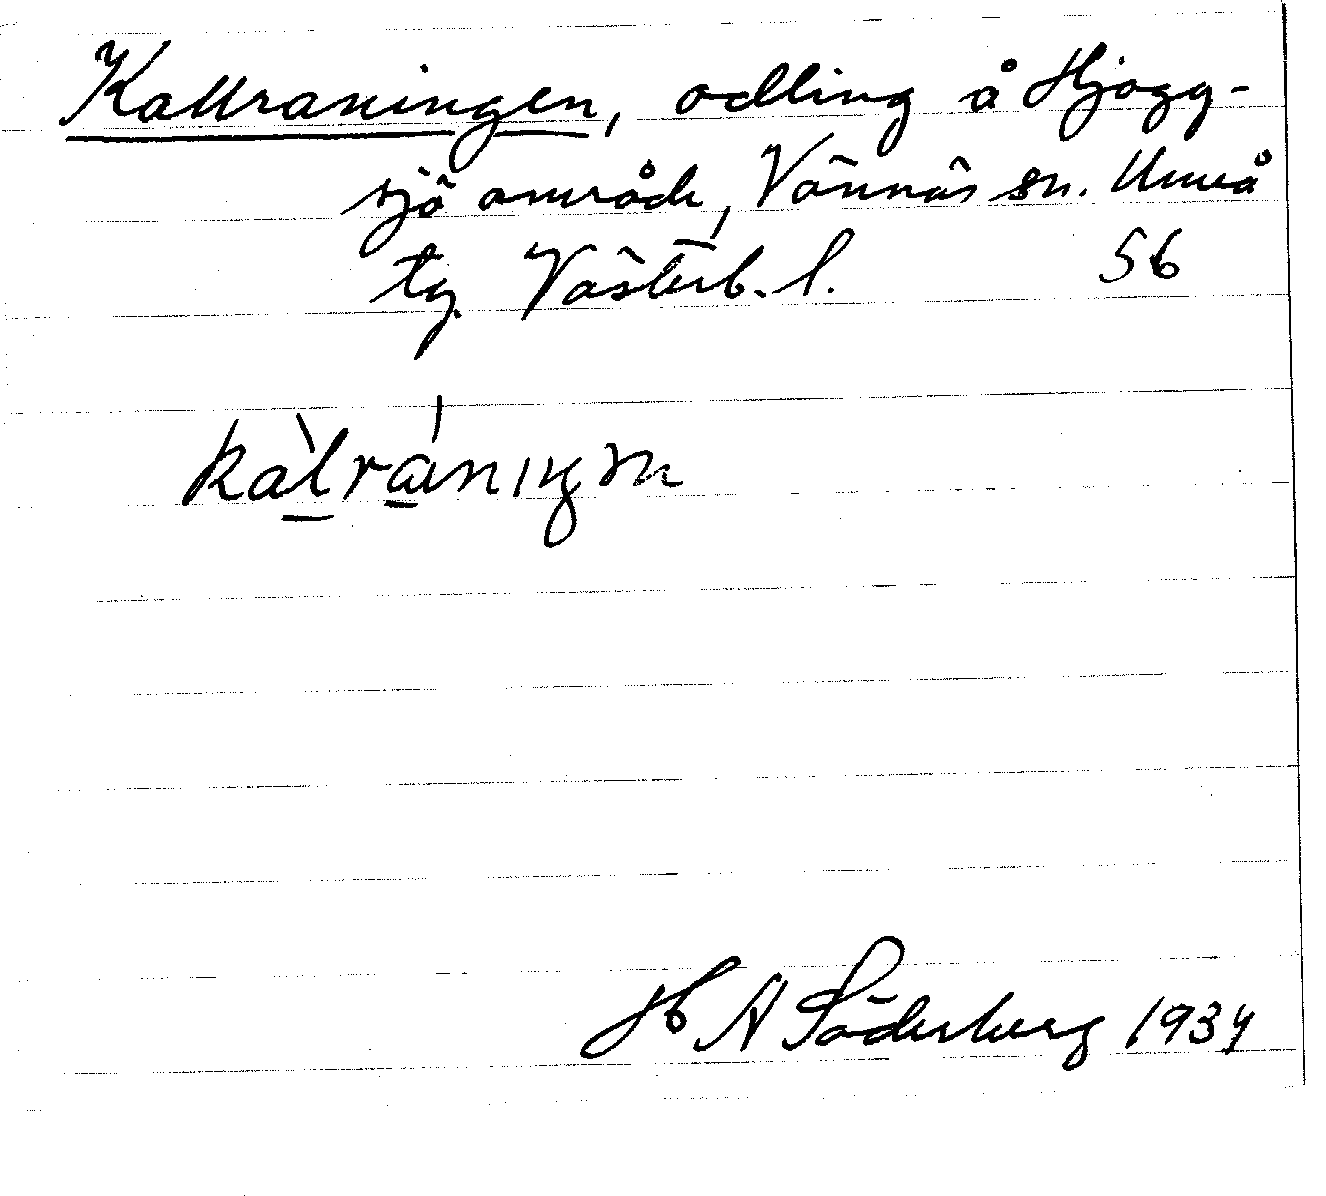 Kallraningen, odling å Hjogg-
sjö område, Vännäs sn. Umeå
tg. Västerb. l. 56
kàlráningən
H A Söderberg 1934